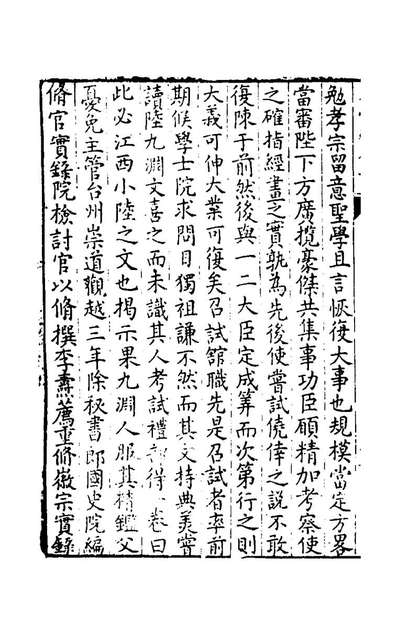 勉孝宗留意聖學且言恢復大事也規模當定方畧
當審陛下方廣攬豪傑共集事功臣願精加考察使
之確指經畫之實孰為先後使嘗試僥倖之說不敢
復陳于前然後與一二大臣定成筭而次第行之則
大義可伸大業可復矣召試舘職先是召試者率前
期候學士院求問目獨祖謙不然而其文特典美嘗
讀陸九淵文喜之而未識其人考試禮部得一卷曰
此必江西小陸之文也揭示果九淵人服其精鑑父
憂免主管台州崇道觀越三年除秘書郎國史院編
脩官實錄院檢討官以脩撰李燾薦重脩徽宗實錄